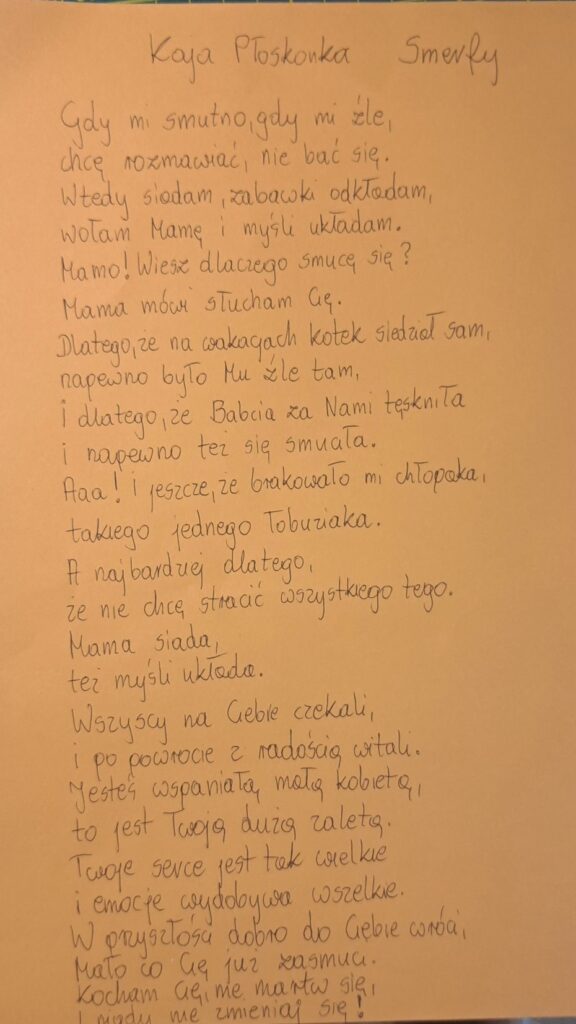 Kaja Płoskonka Smerfy
Gdy mi smutno, gdy mi źle,
chcę rozmawiać, nie bać się.
Wtedy siadam, zabawki odkładam,
wołam Mamę i myśli układam.
Mamo! Wiesz dlaczego smucę się?
Mama mówi słucham Cię.
Dlatego, że na wakacjach kotek siedział sam,
napewno było Mu źle tam,
i dlatego, że Babcia za Nami tęskniła
i napewno też się smuciła.
Aaa! i jeszcze, że brakowało mi chłopaka,
takiego jednego Łobuziaka.
A najbardziej dlatego,
że nie chcę stracić wszystkiego tego.
Mama siada,
też myśli układa.
Wszyscy na Ciebie czekali,
i po powrocie z radością witali.
Jesteś wspaniałą małą kobietą,
to jest Twoją dużą zaletą.
Twoje serce jest tak wielkie
i emocje wydobywa wszelkie.
W przyszłości dobro do Ciebie wróci,
Mało co Cię już zasmuci.
Kocham Cię, nie martw się,
i nigdy nie zmieniaj się!